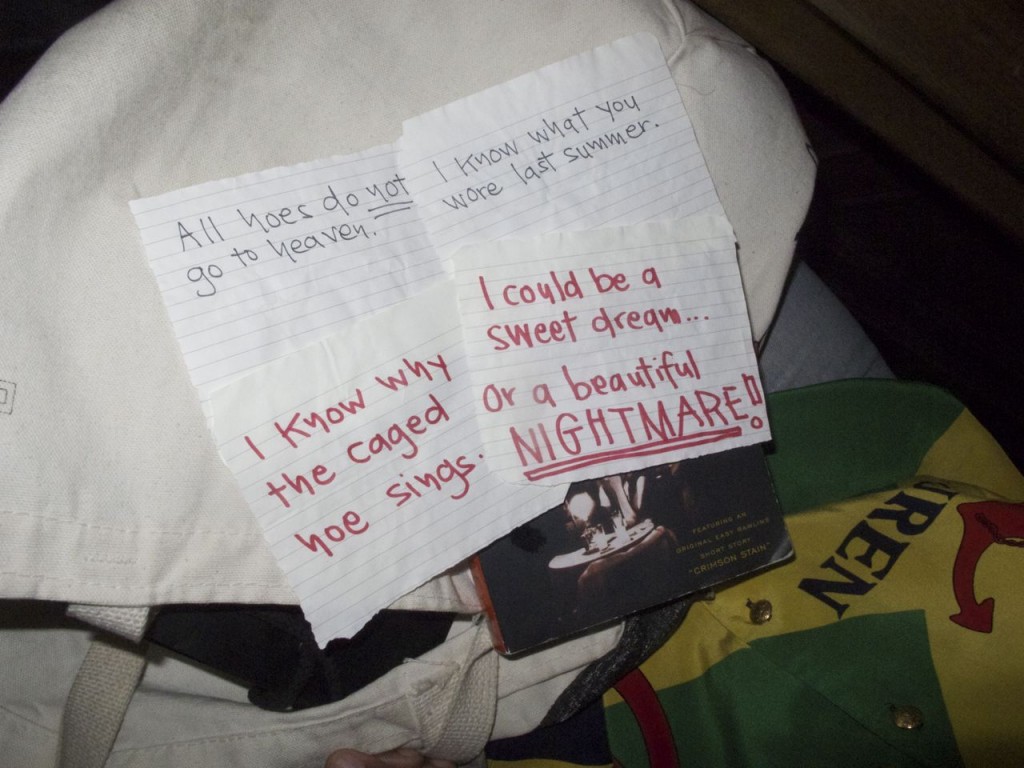 All hoes do not
go to heaven.
I know what you
wore last summer.
I could be a
sweet dream...
Or a beautiful
NIGHTMARE!
I know why
the caged
hoe sings.
FEATURING AN
ORIGINAL EASY RAWLINS
SHORT STORY
"CRIMSON STAIN"
REN